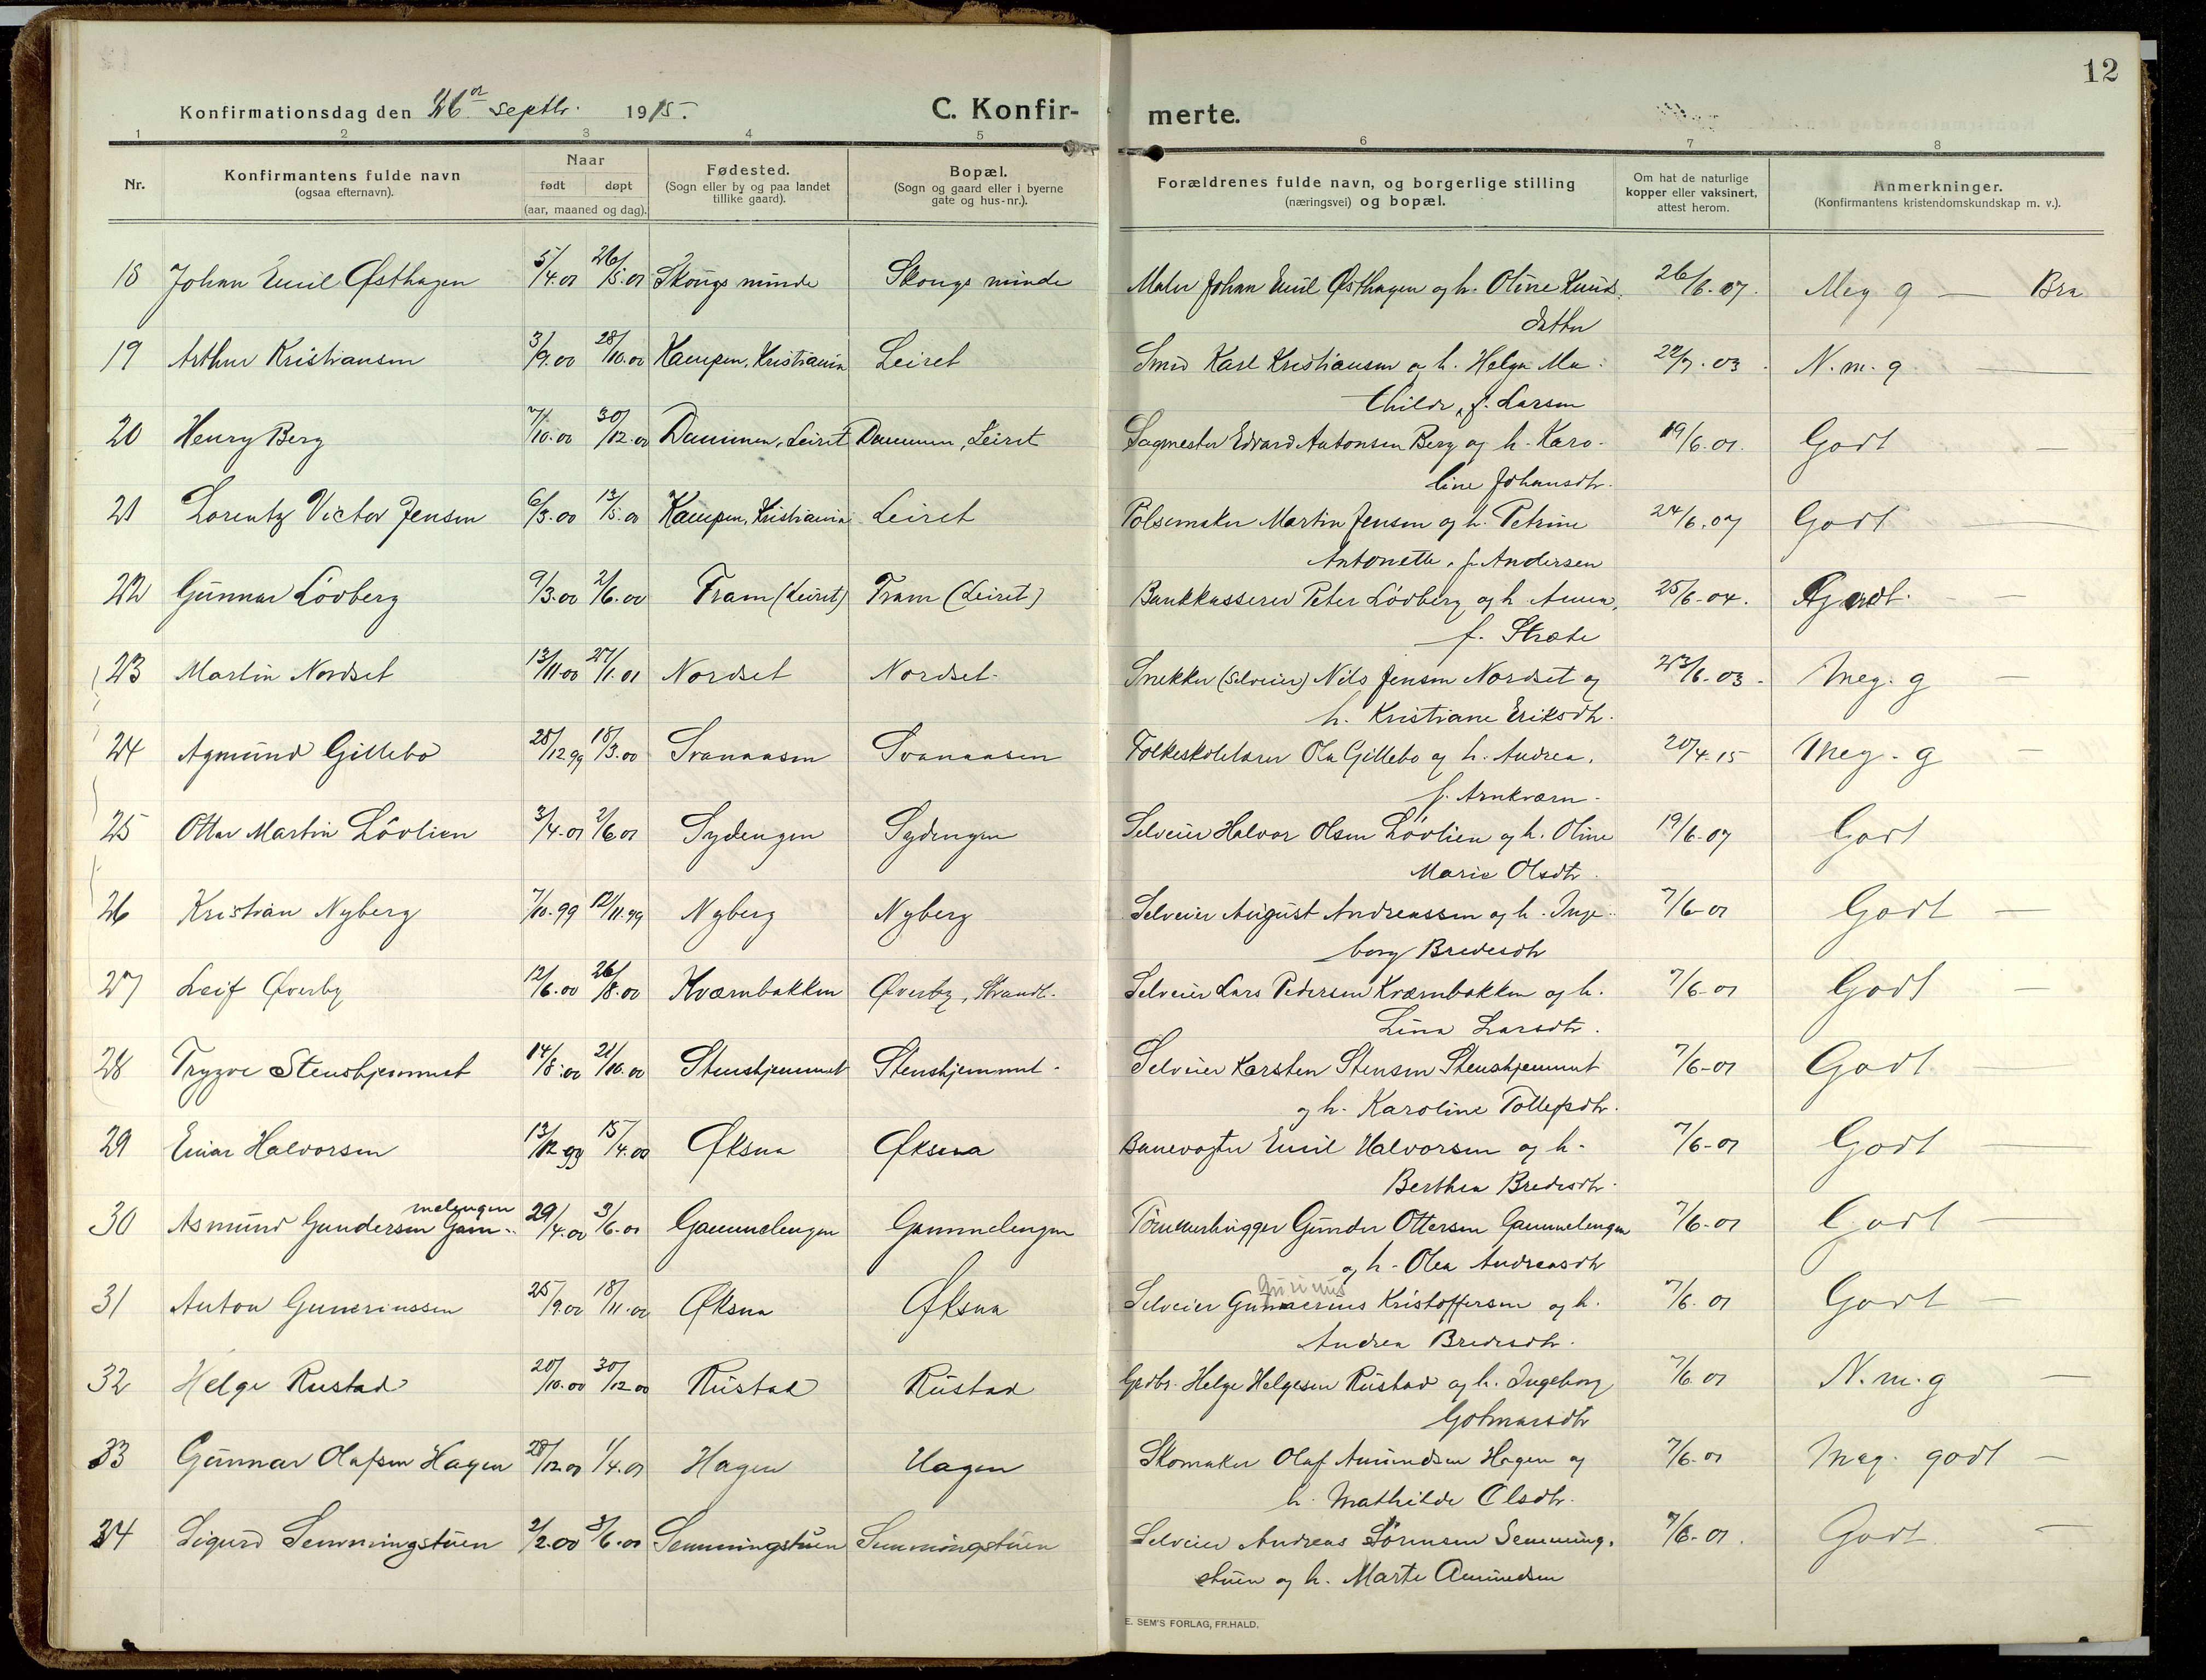 12
Konfirmationsdag den 26de septbr. 1915.
C. Konfirmerte.
1 2 3 4 5 6 7 8
Nr. | Konfirmantens fulde navn (ogsaa efternavn). | Naar født døpt (aar, maaned og dag). | Fødested. (Sogn eller by og paa landet tillike gaard). | Bopæl. (Sogn og gaard eller i byerne gate og hus-nr.). | Forældrenes fulde navn, og borgerlige stilling (næringsvei) og bopæl. | Om hat de naturlige kopper eller vaksinert, attest herom. | Anmerkninger. (Konfirmantens kristendomskundskap m. v.).
18 Johan Emil Østhagen 5/4.01 26/5.01 Skougs minde Skougs minde Maler Johan Emil Østhagen og h. Oline Knuds- 26/6.07. Meg g — Bra
datter
19 Arthur Kristiansen 3/9.00 28/10.00 Kampen, Kristiania Leiret Smed Karl Kristiansen og h. Helga Ma- 22/7.03. N. m. g. —
thilde, f. Larsen
20 Henry Berg 7/10.00 30/12.00 Dammen, Leiret Dammen, Leiret Sagmester Edvard Antonsen Berg og h. Karo- 19/6.01. Godt —
line Johansdtr.
21 Lorentz Victor Jensen 6/3.00 13/5.00 Kampen, Kristiania Leiret Pølsemaker Martin Jensen og h. Petrine 24/6.07 Godt —
Antonette, f. Andersen
22 Gunnar Lövberg 9/3.00 2/6.00 Fram (Leiret) Fram (Leiret) Bankkasserer Peter Lövberg og h. Anna, 25/6-04. Godt. —
f. Stræte
23 Martin Nordset 13/11.00 27/1.01 Nordset Nordset Snekker (Selveier) Nils Jensen Nordset og 23/6-03. Meg. g —
h. Kristiane Eriksdtr.
24 Agmund Gillebo 28/12.99 18/3.00 Svanaasen Svanaasen Folkeskolelærer Ola Gillebo og h. Andrea, 20/4.15 Meg. g —
f. Arnkværn
25 Ottar Martin Lövlien 3/4.01 2/6.01 Sydengen Sydengen Selveier Halvor Olsen Lövlien og h. Oline 19/6-07 Godt
Marie Olsdtr.
26 Kristian Nyberg 7/10.99 12/11.99 Nyberg Nyberg Selveier August Andreassen og h. Inge- 7/6-01 Godt —
borg Bredesdtr
27 Leif Øverby 12/6.00 26/8.00 Kværnbakken Øverby, Strandb. Selveier Lars Pedersen Kværnbakken og h. 7/6-01 Godt —
Lina Larsdtr.
28 Trygve Stenshjemmet 14/8.00 21/10.00 Stenshjemmet Stenshjemmet Selveier Karsten Stensen Stenshjemmet 7/6-01 Godt —
og h. Karoline Tollefsdtr.
29 Einar Halvorsen 13/12.99 15/4.00 Øksna Øksna Banevogter Emil Halvorsen og h. 7/6-01 Godt —
Berthea Bredesdtr.
30 Asmund Gundersen Gammelengen 29/4.00 3/6.01 Gammelengen Gammelengen Tömmerhugger Gunder Ottersen Gammelengen 7/6-01 Godt —
og h. Olea Andreasdtr
31 Anton Gunerinssen 25/9.00 18/11.00 Øksna Øksna Selveier Gunnerius Kristoffersen og h. 7/6.01 Godt —
Andrea Bredesdtr.
32 Helge Rustad 20/10.00 30/12.00 Rustad Rustad Gdbr. Helge Helgesen Rustad og h. Ingeborg 7/6.01 N. m. g —
Golmarsdtr
33 Gunnar Olafsen Hagen 28/12.00 1/4.01 Hagen Hagen Skomaker Olaf Amundsen Hagen og 7/6.01 Meg. godt —
h. Mathilde Olsdtr.
34 Sigurd Semmingstuen 2/2.00 3/6.01 Semmingstuen Semmingstuen Selveier Andreas Sörensen Semming- 7/6-01. Godt —
stuen og h. Marte Amundsen
E. SEM'S FORLAG, FR.HALD.